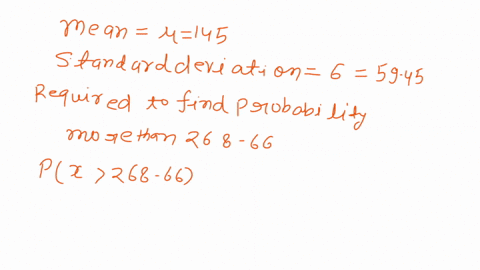 mean = μ = 145
Standard deviation = 6 = 59.45
Required to find Probability
more than 268-66
P(x > 268-66)